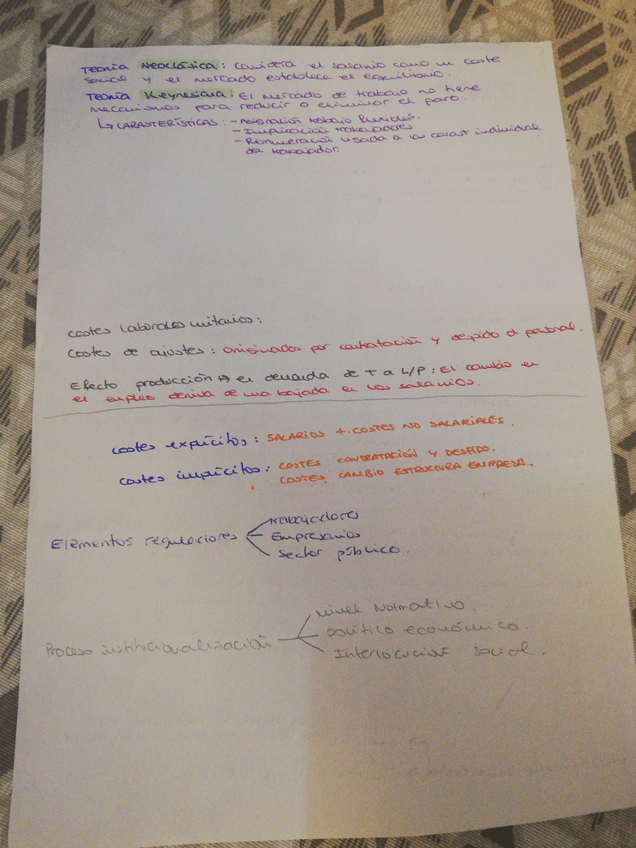 Teoría Neoclásica: considera el salario como un coste
social y el mercado establece el equilibrio.
Teoría Keynesiana: El mercado de trabajo no tiene
mecanismos para reducir o eliminar el paro
↳ CARASTERÍSTICAS: - Asignación trabajo flexibles.
- Implicación trabajadores
- Remuneración usada a las caract individual
del trabajador.
Costes laborales unitarios:
Costes de ajustes: originados por contratación y despido d personal.
Efecto producción → en demanda de T a L/P: El cambio en
el empleo deriva de una bajada en los salarios.
costes explícitos: SALARIOS + COSTES NO SALARIALES.
costes implícitos: COSTES CONTRATACIÓN Y DESPIDO.
COSTES CAMBIO ESTRUCTURA EMPRESA.
trabajadores
Elementos reguladores Empresarios
Sector público.
Nivel Normativo.
Proceso institucionalización político económico.
Interlocución social.